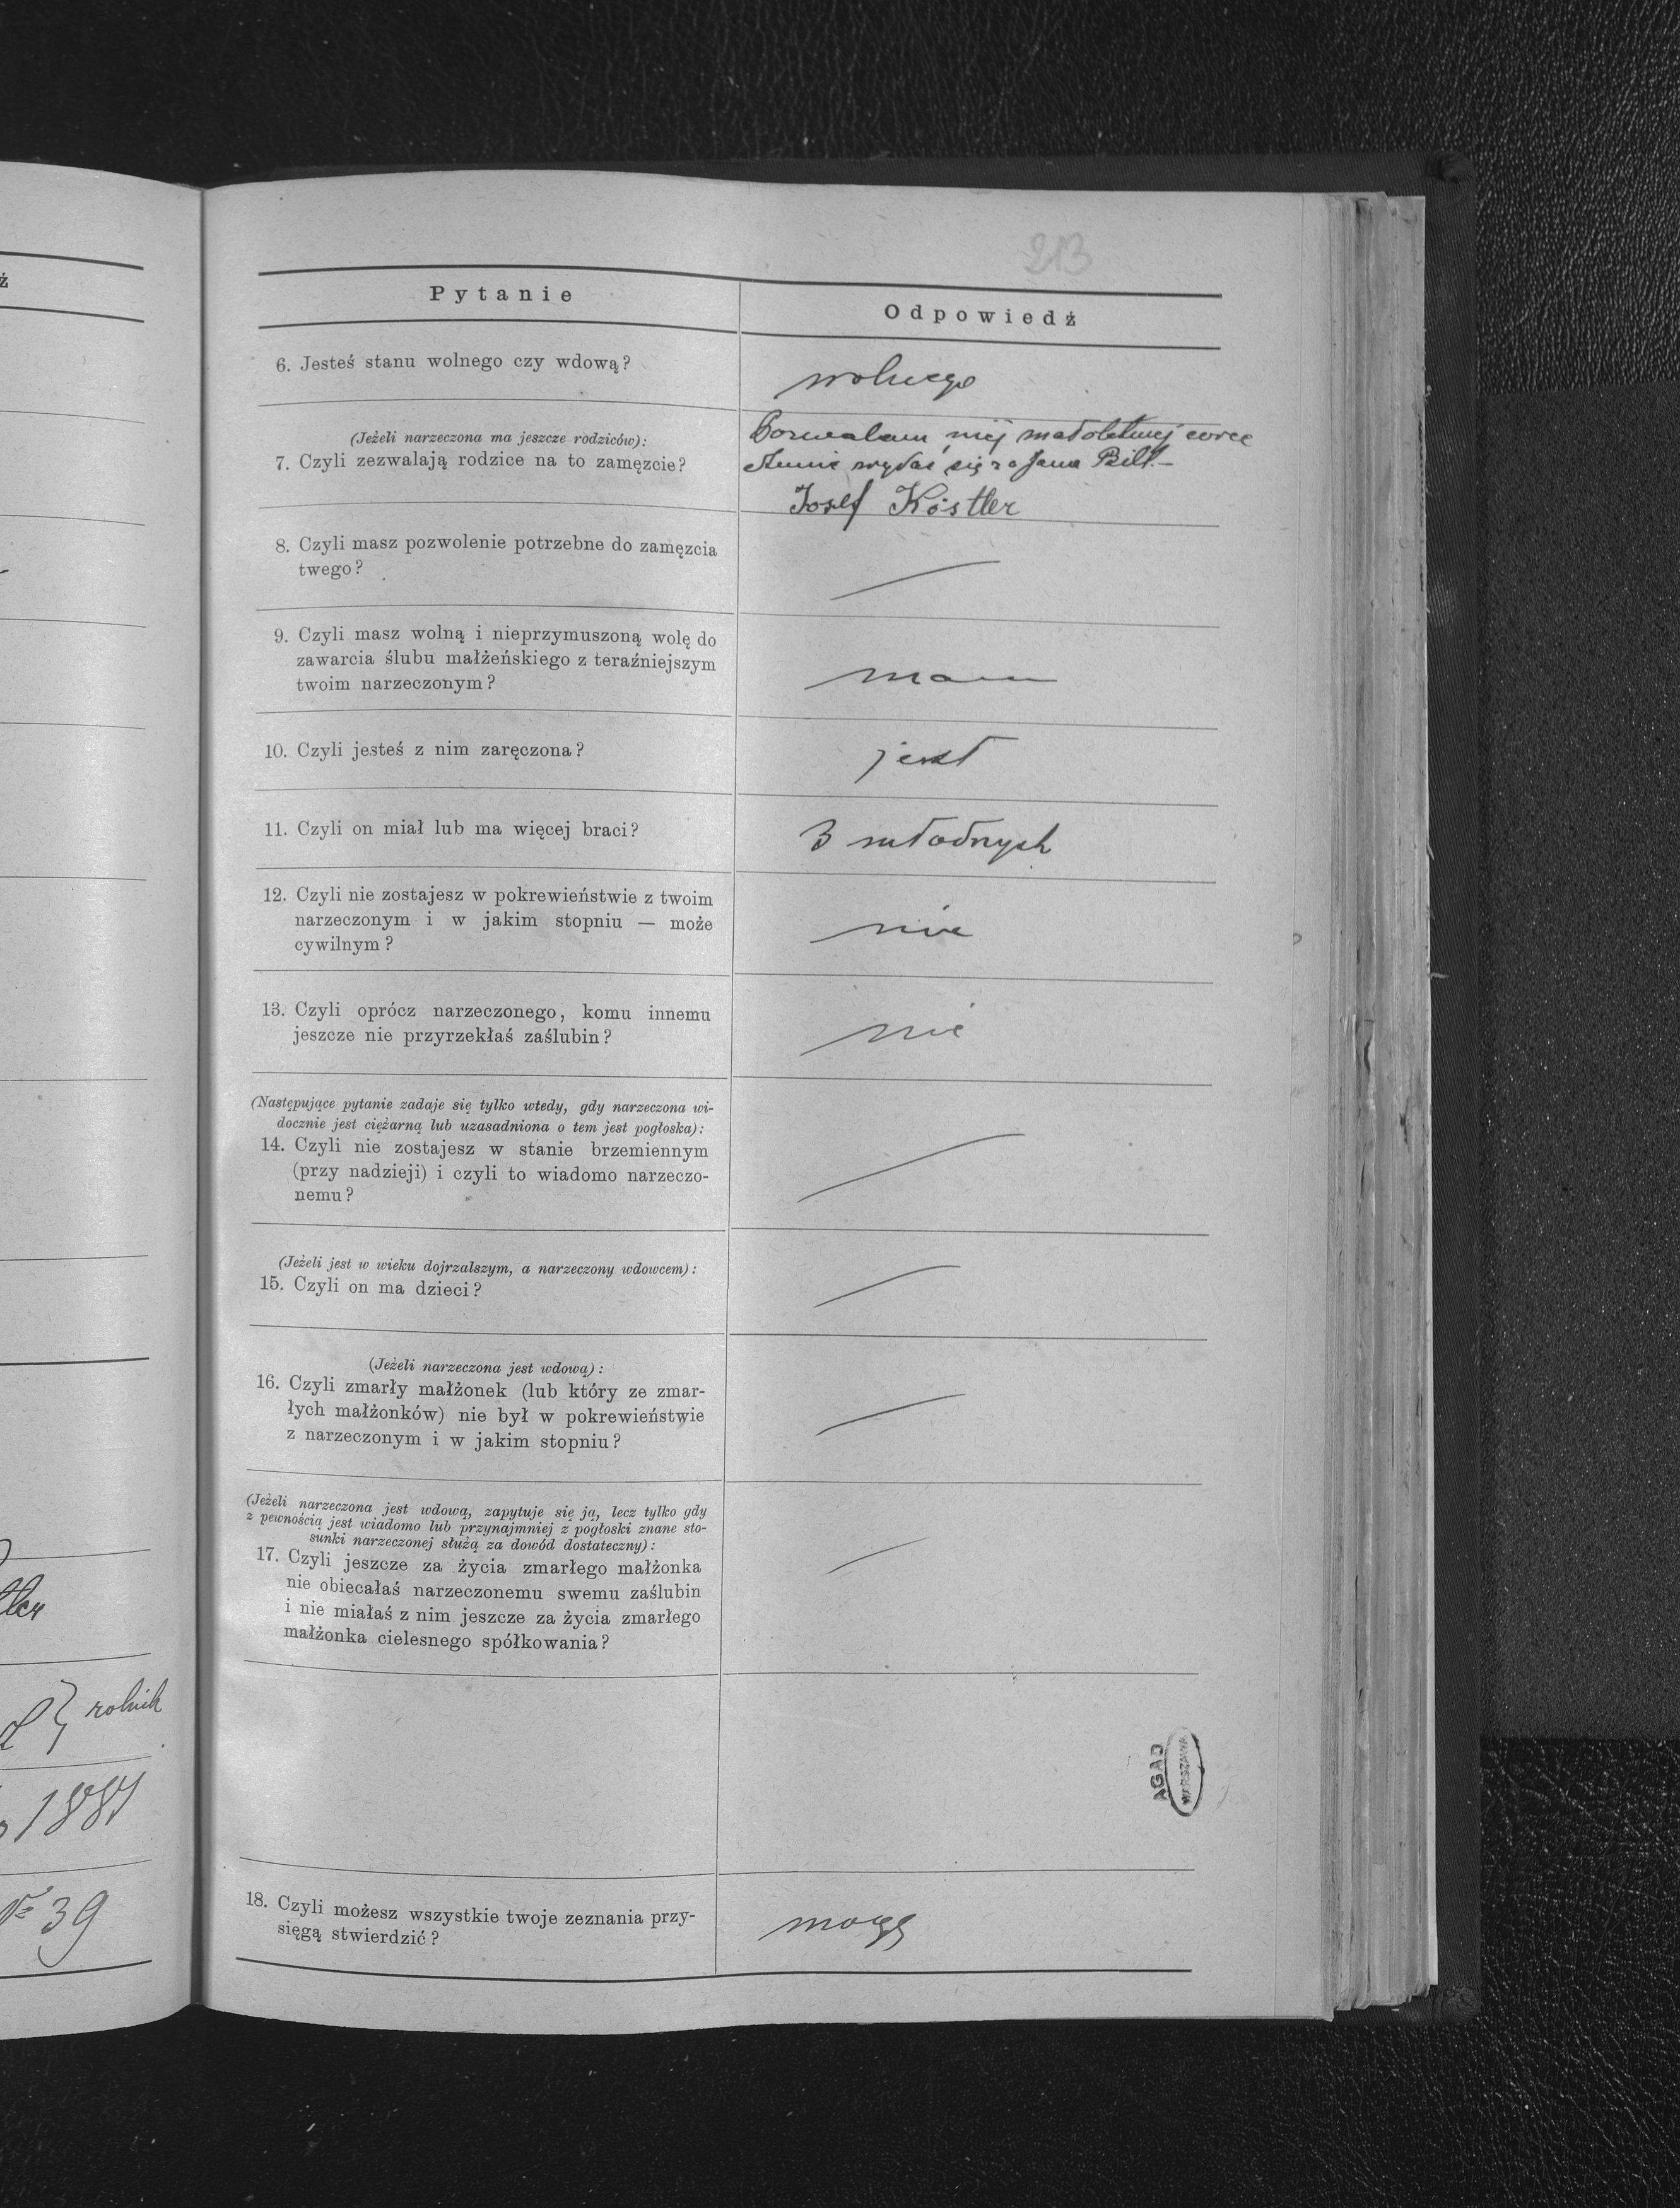 ź
tler
rolnik
1881
№ 39
213
Pytanie
Odpowiedź
6. Jesteś stanu wolnego czy wdową?
wolnego
(Jeżeli narzeczona ma jeszcze rodziców):
7. Czyli zezwalają rodzice na to zamęzcie?
Pozwalam mej małoletniej córce
Annie wydać się za Jana Bill.
Josef Köstler
8. Czyli masz pozwolenie potrzebne do zamęzcia
twego?
9. Czyli masz wolną i nieprzymuszoną wolę do
zawarcia ślubu małżeńskiego z teraźniejszym
twoim narzeczonym?
mam
10. Czyli jesteś z nim zaręczona?
jest
11. Czyli on miał lub ma więcej braci?
3 młodszych
12. Czyli nie zostajesz w pokrewieństwie z twoim
narzeczonym i w jakim stopniu — może
cywilnym?
nie
13. Czyli oprócz narzeczonego, komu innemu
jeszcze nie przyrzekłaś zaślubin?
nie
(Następujące pytanie zadaje się tylko wtedy, gdy narzeczona wi-
docznie jest ciężarną lub uzasadniona o tem jest pogłoska):
14. Czyli nie zostajesz w stanie brzemiennym
(przy nadzieji) i czyli to wiadomo narzeczo-
nemu?
(Jeżeli jest w wieku dojrzalszym, a narzeczony wdowcem):
15. Czyli on ma dzieci?
(Jeżeli narzeczona jest wdową):
16. Czyli zmarły małżonek (lub który ze zmar-
łych małżonków) nie był w pokrewieństwie
z narzeczonym i w jakim stopniu?
(Jeżeli narzeczona jest wdową, zapytuje się ją, lecz tylko gdy
z pewnością jest wiadomo lub przynajmniej z pogłoski znane sto-
sunki narzeczonej służą za dowód dostateczny):
17. Czyli jeszcze za życia zmarłego małżonka
nie obiecałaś narzeczonemu swemu zaślubin
i nie miałaś z nim jeszcze za życia zmarłego
małżonka cielesnego spółkowania?
AGAD
WARSZAWA
18. Czyli możesz wszystkie twoje zeznania przy-
sięgą stwierdzić?
mogę